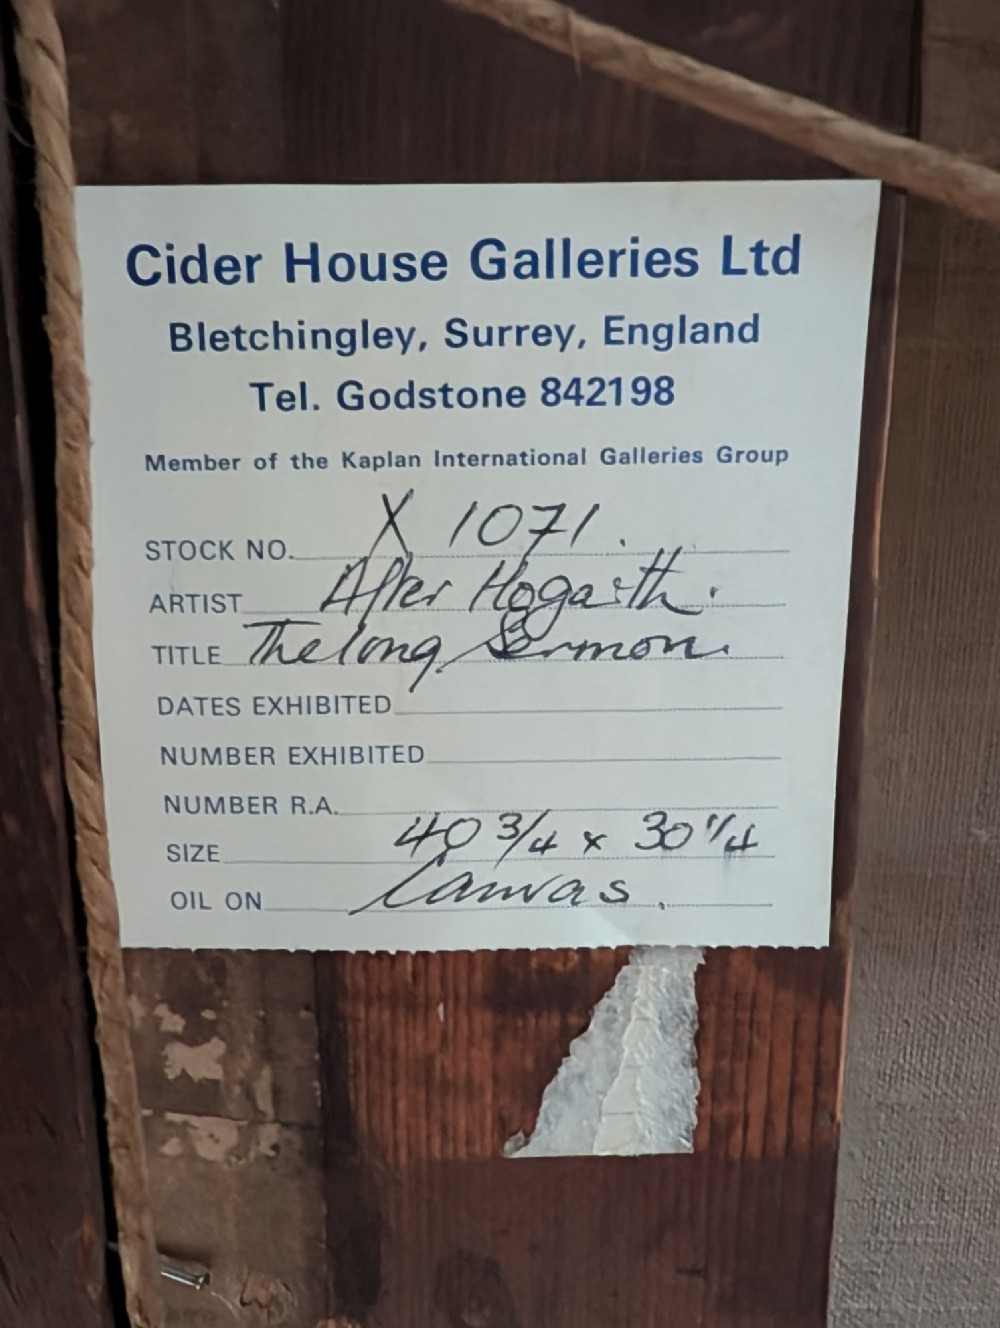 Cider House Galleries Ltd
Bletchingley, Surrey, England
Tel. Godstone 842198
Member of the Kaplan International Galleries Group
STOCK NO. X 1071.
ARTIST After Hogarth.
TITLE The long Sermon.
DATES EXHIBITED
NUMBER EXHIBITED
NUMBER R.A.
SIZE 40 3/4 x 30 1/4
OIL ON Canvas.